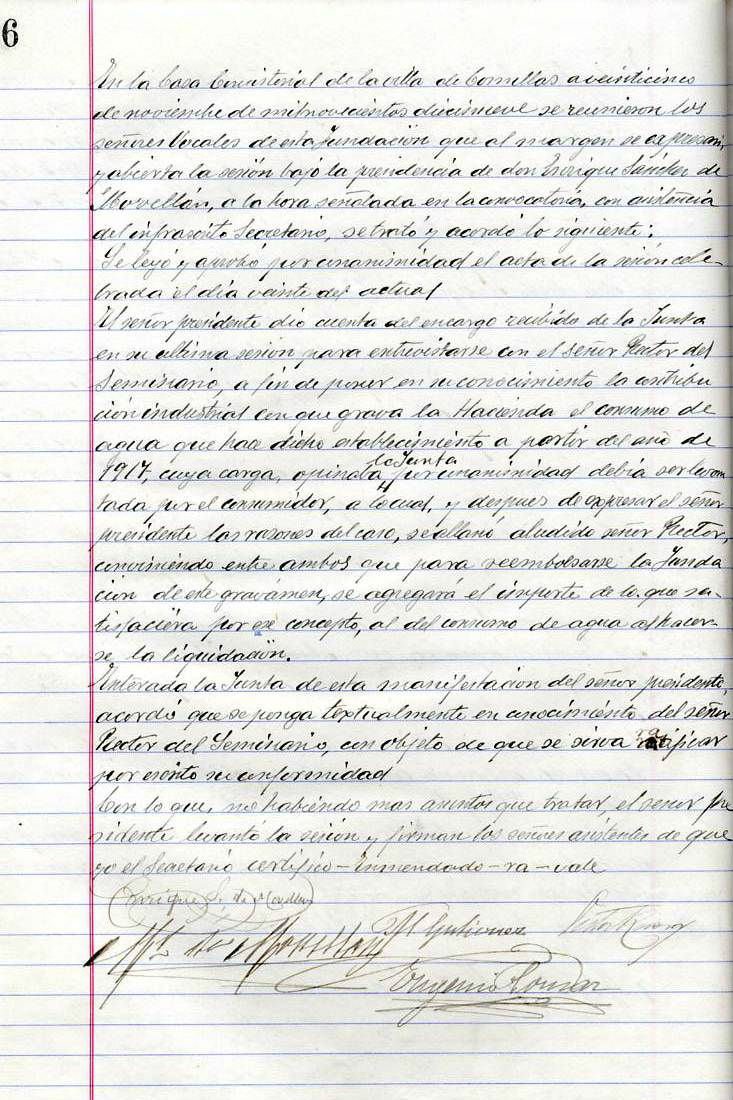 6
En la Casa Consistorial de la villa de Comillas a veinticinco
de noviembre de mil novecientos diecinueve se reunieron los
señores Vocales de esta Fundación que al margen se expresan,
y abierta la sesión bajo la presidencia de don Enrique Sánchez de
Movellán, a la hora señalada en la convocatoria, con asistencia
del infrascrito Secretario, se trató y acordó lo siguiente:
Se leyó y aprobó por unanimidad el acta de la sesión cele-
brada el día veinte del actual
El señor presidente dio cuenta del encargo recibido de la Junta
en su ultima sesión para entrevistarse con el señor Rector del
Seminario, a fin de poner en su conocimiento la contribu
ción industrial con que grava la Hacienda el consumo de
agua que hace dicho establecimiento a partir del año de
la Junta
1917, cuya carga, opinaba por unanimidad debía ser levan
tada por el consumidor, a lo cual, y despues de expresar el señor
presidente las razones del caso, se allanó aludido señor Rector,
conviniendo entre ambos que para reembolsarse la Funda
ción de este gravámen, se agregará el importe de lo que sa-
tisfaciera por ese concepto, al del consumo de agua al hacer-
se la liquidación.
Enterada la Junta de esta manifestacion del señor presidente,
acordó que se ponga textualmente en conocimiento del señor
Rector del Seminario, con objeto de que se sirva ratificar
por escrito su conformidad
Con lo que, no habiendo mas asuntos que tratar, el señor pre
sidente levantó la sesión y firman los señores asistentes de que
yo el Secretario certifico - Enmendado - ra - vale
Enrique S. de Movellan
de Movellan
M Gutierrez
Eugenio